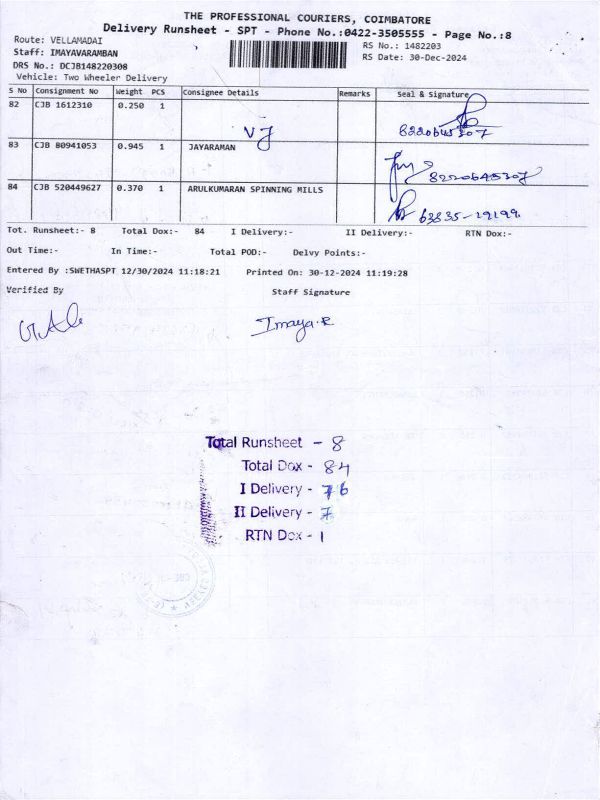 THE PROFESSIONAL COURIERS, COIMBATORE
Delivery Runsheet - SPT - Phone No.:0422-3505555 - Page No.:8
Route: VELLAMADAI
RS No.: 1482203
Staff: IMAYAVARAMBAN
RS Date: 30-Dec-2024
DRS No.: DCJB148220308
Vehicle: Two Wheeler Delivery
S No Consignment No Weight PCS Consignee Details Remarks Seal & Signature
82 CJB 1612310 0.250 1
VJ 8220645307
83 CJB 80941053 0.945 1 JAYARAMAN
8220645307
84 CJB 520449627 0.370 1 ARULKUMARAN SPINNING MILLS
63835-29199
Tot. Runsheet:- 8 Total Dox:- 84 I Delivery:- II Delivery:- RTN Dox:-
Out Time:- In Time:- Total POD:- Delvy Points:-
Entered By :SWETHASPT 12/30/2024 11:18:21 Printed On: 30-12-2024 11:19:28
Verified By Staff Signature
Imaya.R
Total Runsheet - 8
Total Dox - 84
I Delivery - 76
II Delivery - 7
RTN Dox - 1